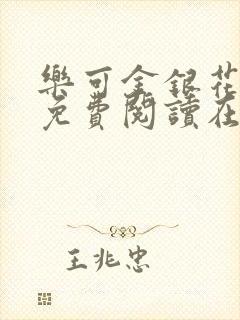 樂可金銀花
免費閱讀在
王兆忠